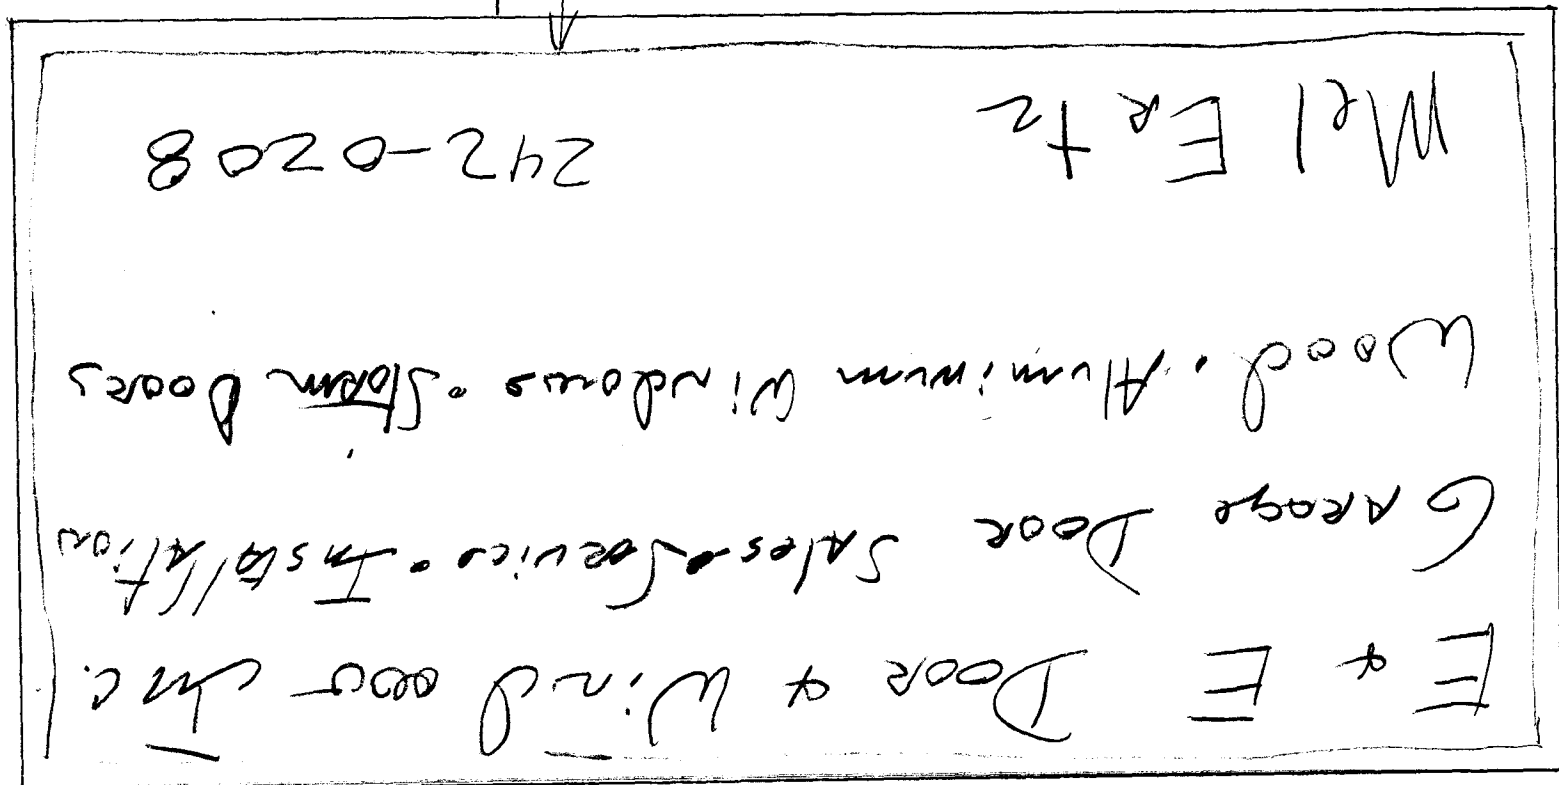 E & E Door & Window Inc.
Garage Door Sales • Service • Installation
Wood • Aluminum Windows • Storm Doors
Mel Ertz 242-0208